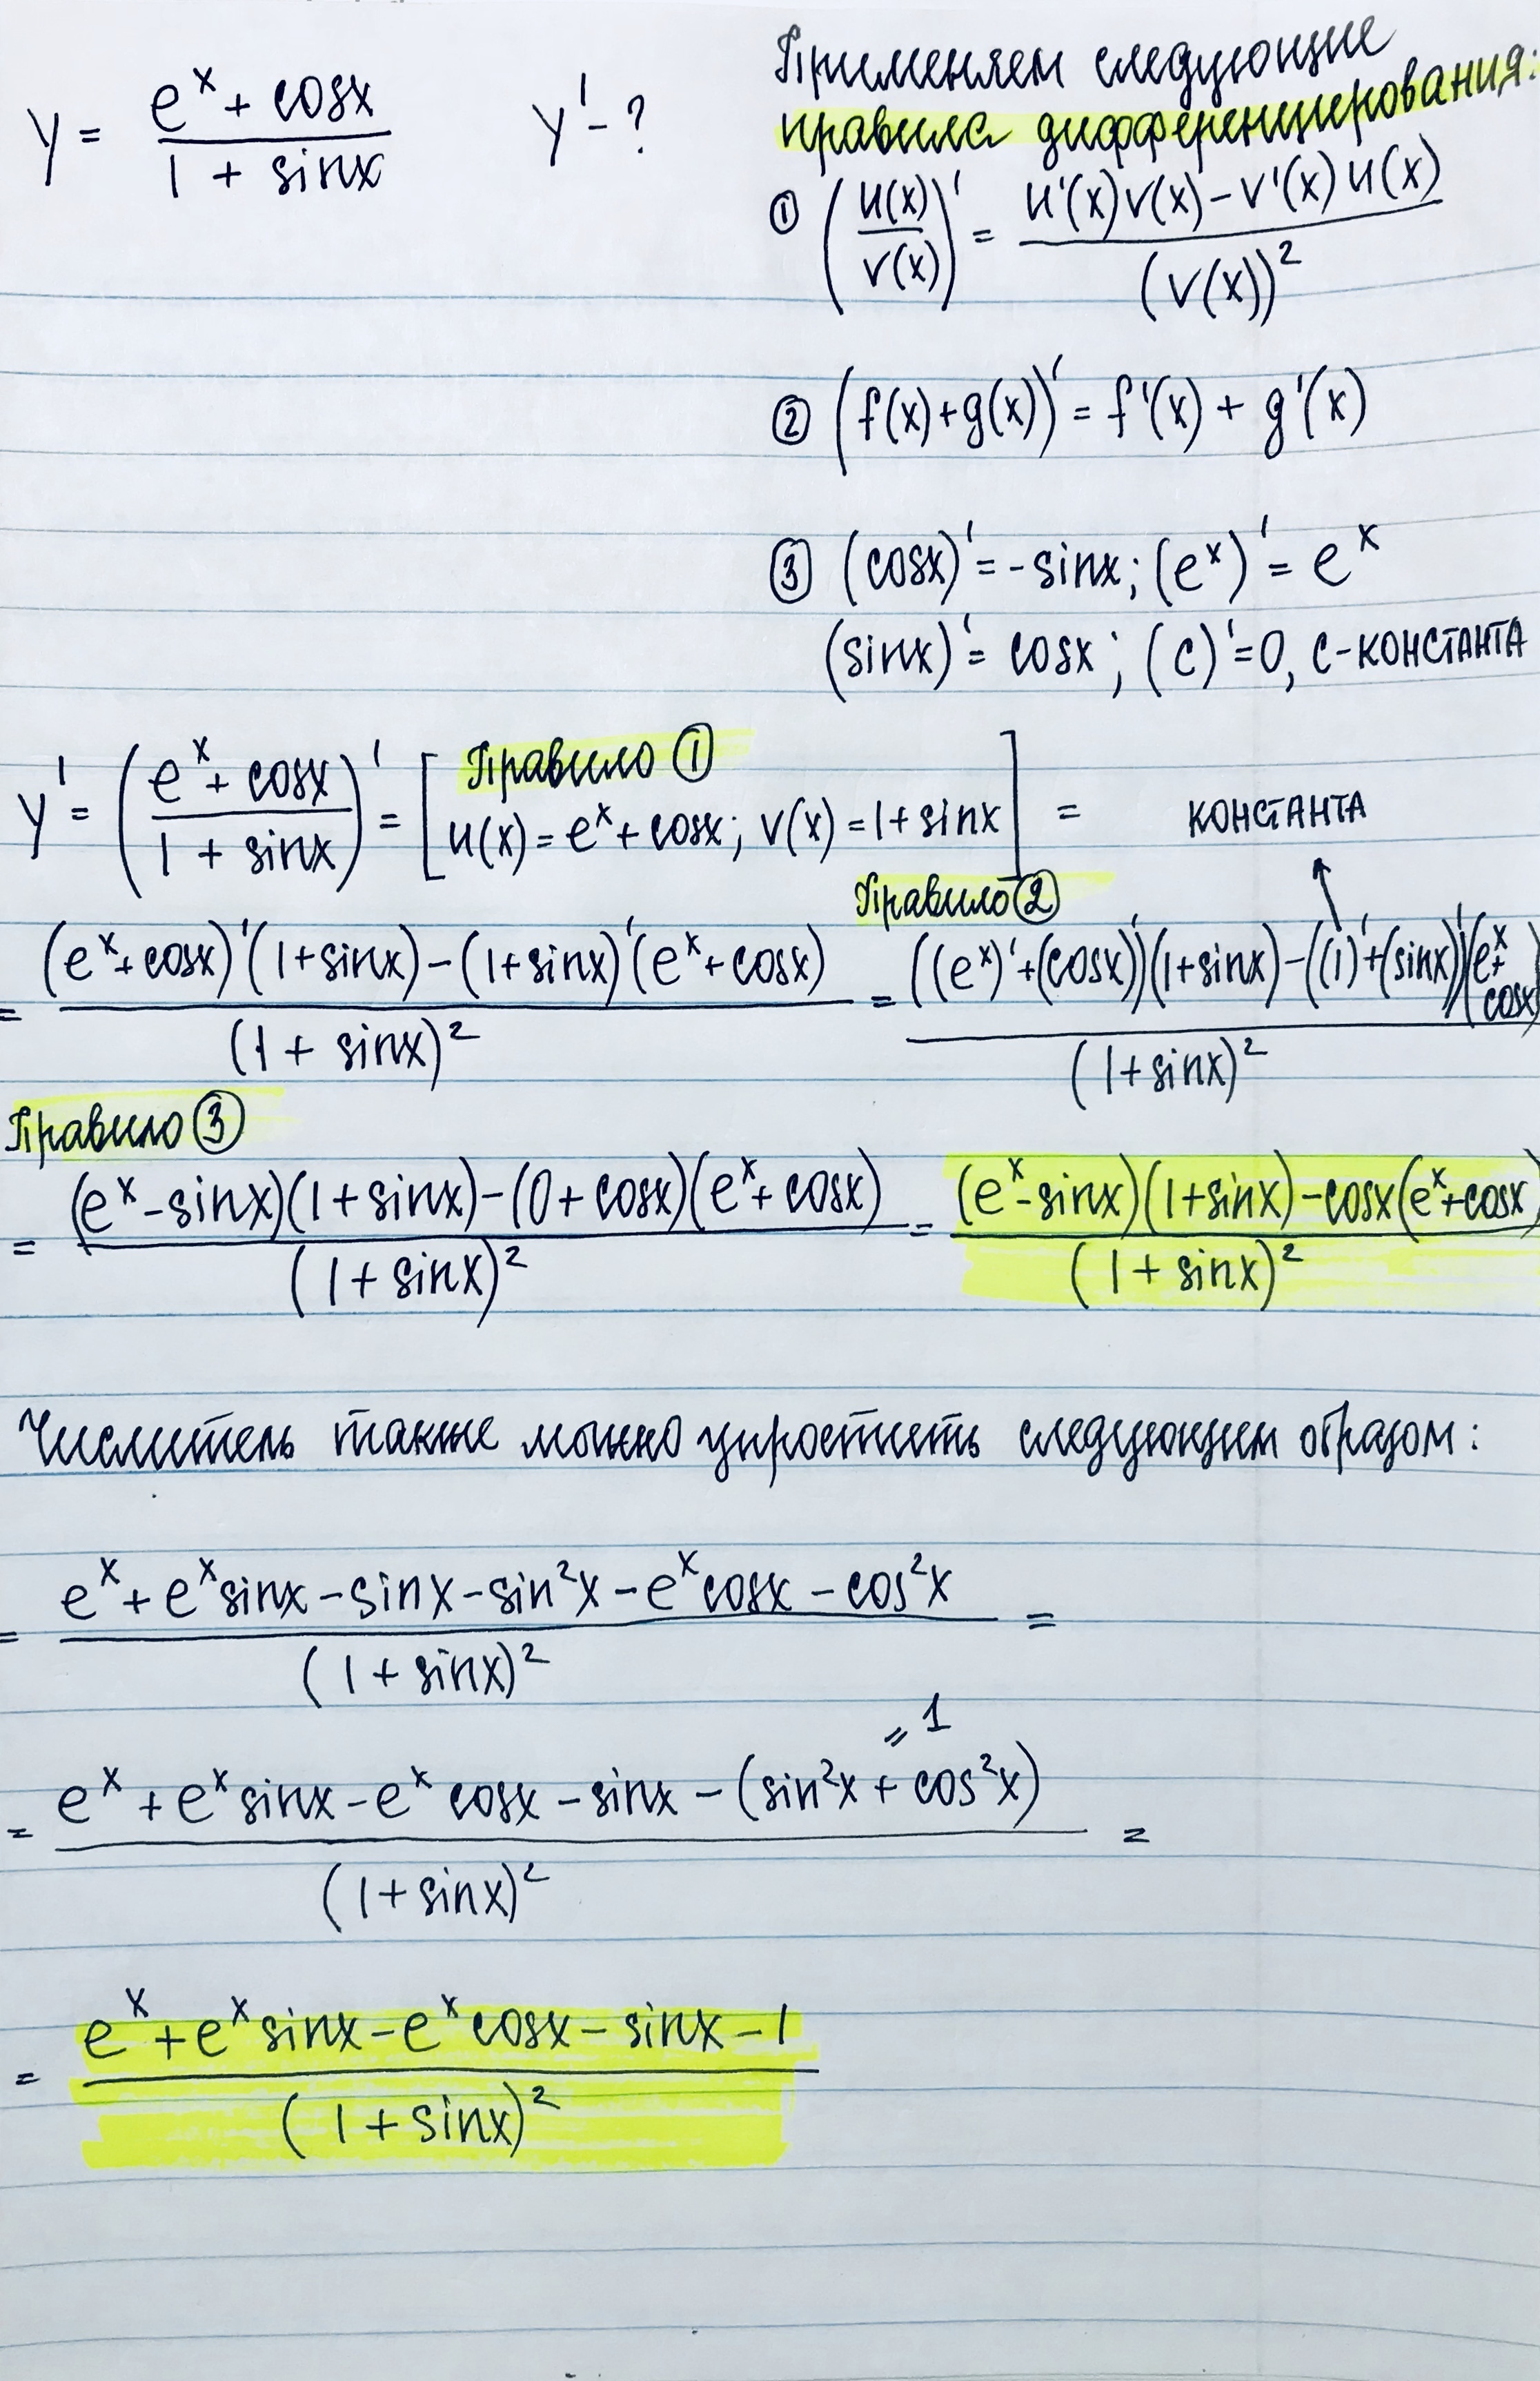 y = (e^x + cosx)/(1 + sinx) y' - ?
Применяем следующие
правила дифференцирования:
① (u(x)/v(x))' = (u'(x)v(x) - v'(x)u(x))/(v(x))^2
② (f(x)+g(x))' = f'(x) + g'(x)
③ (cosx)' = -sinx; (e^x)' = e^x
(sinx)' = cosx; (c)' = 0, c-константа
y' = ((e^x + cosx)/(1 + sinx))' = [Правило ① u(x) = e^x + cosx; v(x) = 1 + sinx] =
константа
Правило ②
= ((e^x + cosx)'(1+sinx) - (1+sinx)'(e^x + cosx))/(1 + sinx)^2 = (((e^x)' + (cosx)')(1+sinx) - ((1)' + (sinx)')(e^x + cosx))/(1+sinx)^2
Правило ③
= ((e^x - sinx)(1 + sinx) - (0 + cosx)(e^x + cosx))/(1 + sinx)^2 = ((e^x - sinx)(1+sinx) - cosx(e^x + cosx))/(1 + sinx)^2
Числитель также можно упростить следующим образом:
= (e^x + e^x sinx - sinx - sin^2x - e^x cosx - cos^2x)/(1 + sinx)^2 =
= 1
= (e^x + e^x sinx - e^x cosx - sinx - (sin^2x + cos^2x))/(1+sinx)^2 =
= (e^x + e^x sinx - e^x cosx - sinx - 1)/(1 + sinx)^2